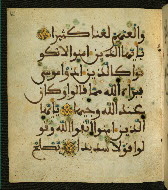 والعنهم لعنا كثيرا
يايها الذين امنوا لا تكو
نوا كالذين اذوا موسى
فبراه الله مما قالوا وكان
عند الله وجيها يايها
الذين امنوا اتقوا الله وقو
لوا قولا سديدا يصلح